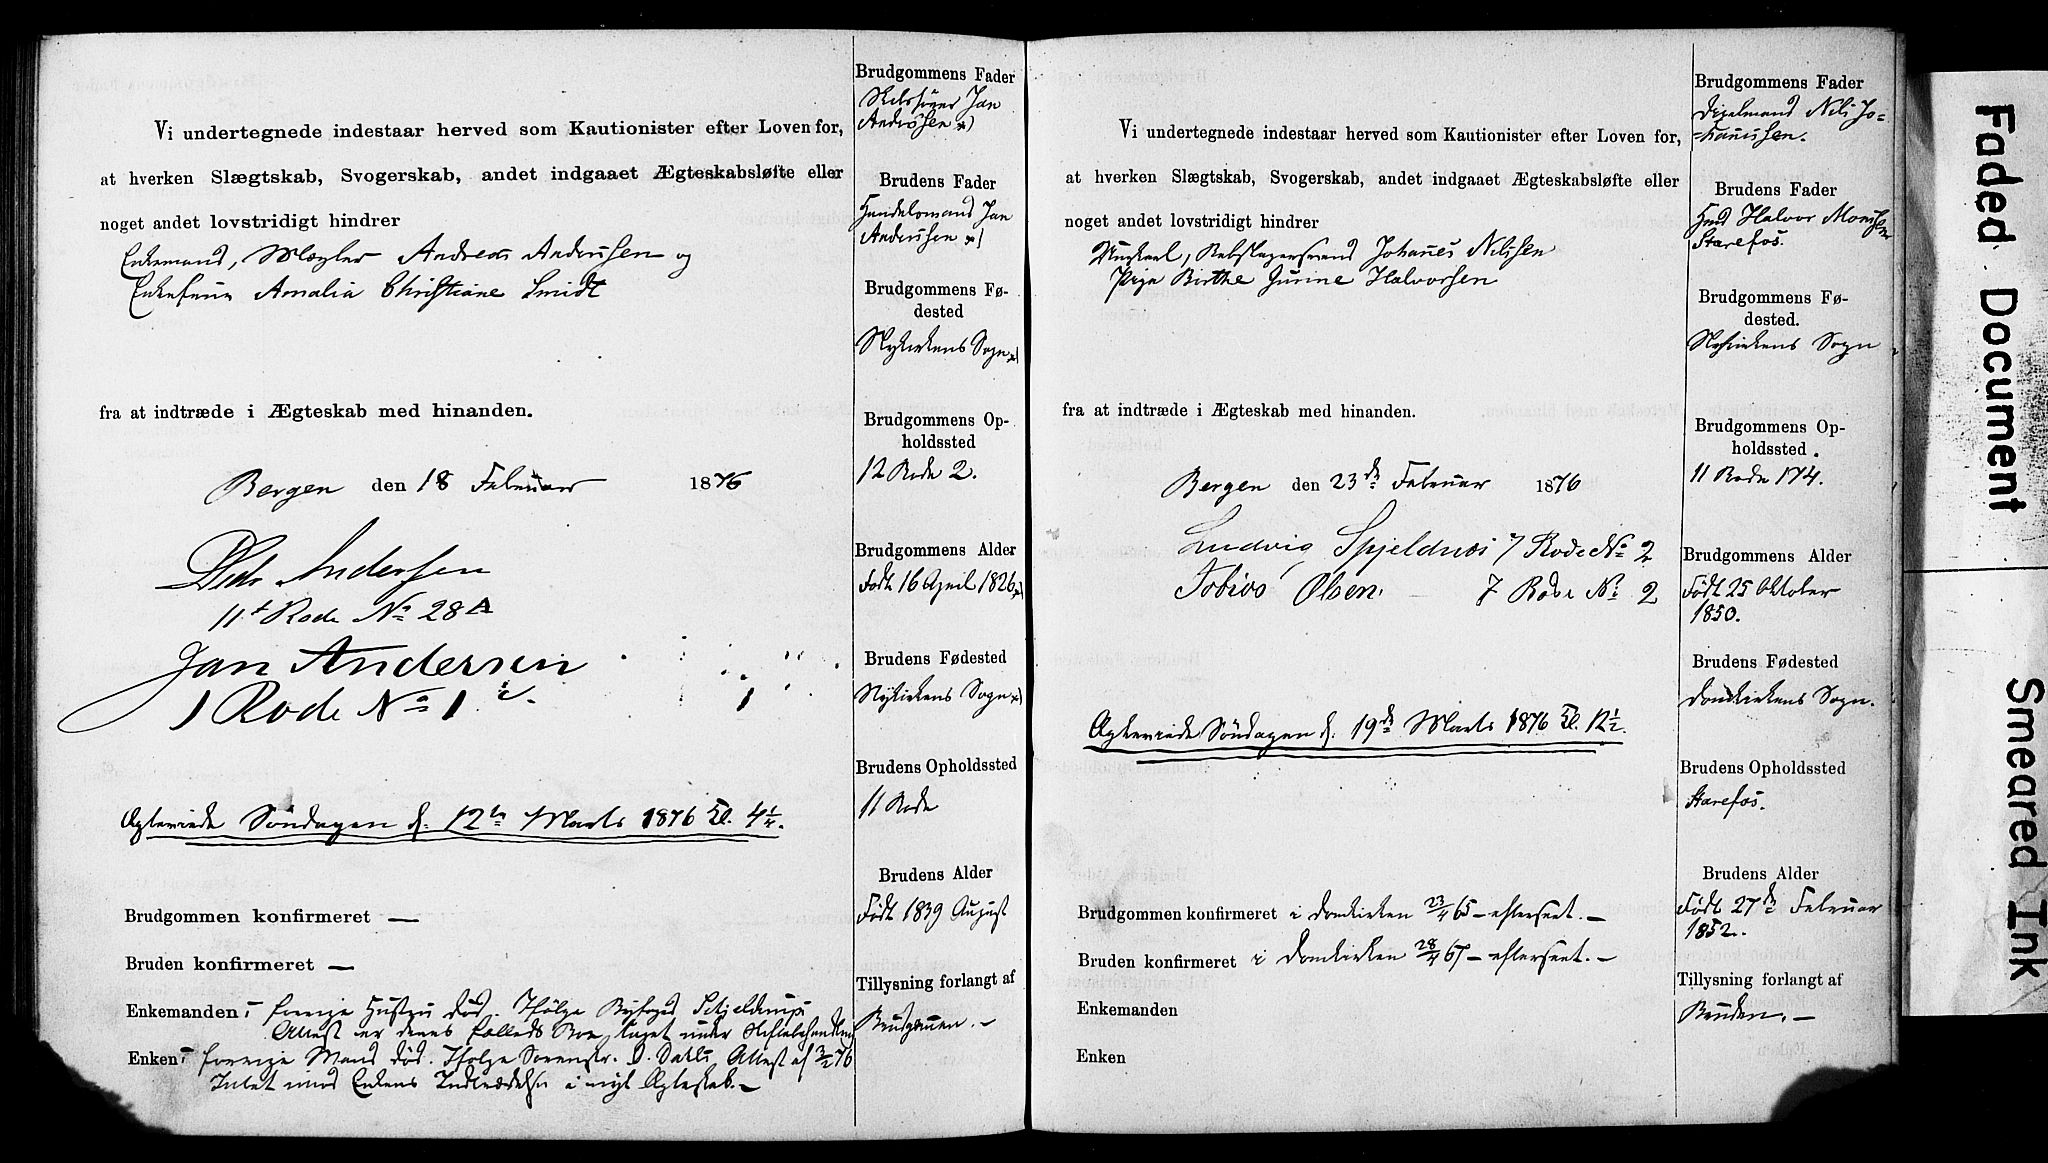 Vi undertegnede indestaar herved som Kautionister efter Loven for,
at hverken Slægtskab, Svogerskab, andet indgaaet Ægteskabsløfte eller
noget andet lovstridigt hindrer
Enkemand, Mægler Andreas Anderssen og
Enkefrue Amalia Christiane Smidt
fra at indtræde i Ægteskab med hinanden.
Bergen den 18 Februar 1876
Andersen
11t Rode No 28A
Jan Andersen
1 Rode No 1
Ægteviede Søndagen d. 12te Marts 1876 Kl. 4¼.
Brudgommen konfirmeret —
Bruden konfirmeret —
Enkemanden: forrige Hustru død. Ifølge Byfoged
Attest er deres Fælleds Bo taget under Skiftebehandling
Enken: forrige Mand død. Ifølge Sorenskr. D. Dahls Attest af 3/2 76
Intet mod Enkens Indtrædelse i nyt Ægteskab. —
Brudgommens Fader
Jan
Anderssen x)
Brudens Fader
Handelsmand Jan
Anderssen x)
Brudgommens Fø-
dested
Nykirkens Sogn x)
Brudgommens Op-
holdssted
12 Rode 2.
Brudgommens Alder
Født 16 April 1826 x)
Brudens Fødested
Nykirkens Sogn x)
Brudens Opholdssted
11 Rode
Brudens Alder
Født 1839 August
Tillysning forlangt af
Brudgommen. —
Vi undertegnede indestaar herved som Kautionister efter Loven for,
at hverken Slægtskab, Svogerskab, andet indgaaet Ægteskabsløfte eller
noget andet lovstridigt hindrer
Ungkarl, Rebslagersvend Johannes Nilssen
Pige Birthe Gurine Halvorsen
fra at indtræde i Ægteskab med hinanden.
Bergen den 23de Februar 1876
Ludvig Spjeldnæs 7 Rode No 2
Tobias Olsen. — 7 Rode No 2
Ægteviede Søndagen d. 19de Marts 1876 Kl. 12½.
Brudgommen konfirmeret i Domkirken 23/4 65 — efterseet. —
Bruden konfirmeret i Domkirken 28/4 67 — efterseet. —
Enkemanden
Enken
Brudgommens Fader
Nils Jo=
=hannessen.
Brudens Fader
Hmd Halvor Monssen
Starefos.
Brudgommens Fø-
dested.
Nykirkens Sogn
Brudgommens Op-
holdssted.
11 Rode 174.
Brudgommens Alder
Født 25 Oktober
1850.
Brudens Fødested
Domkirkens Sogn.
Brudens Opholdssted
Starefos.
Brudens Alder
Født 27de Februar
1852.
Tillysning forlangt af
Bruden. —
Faded Document
Smeared Ink